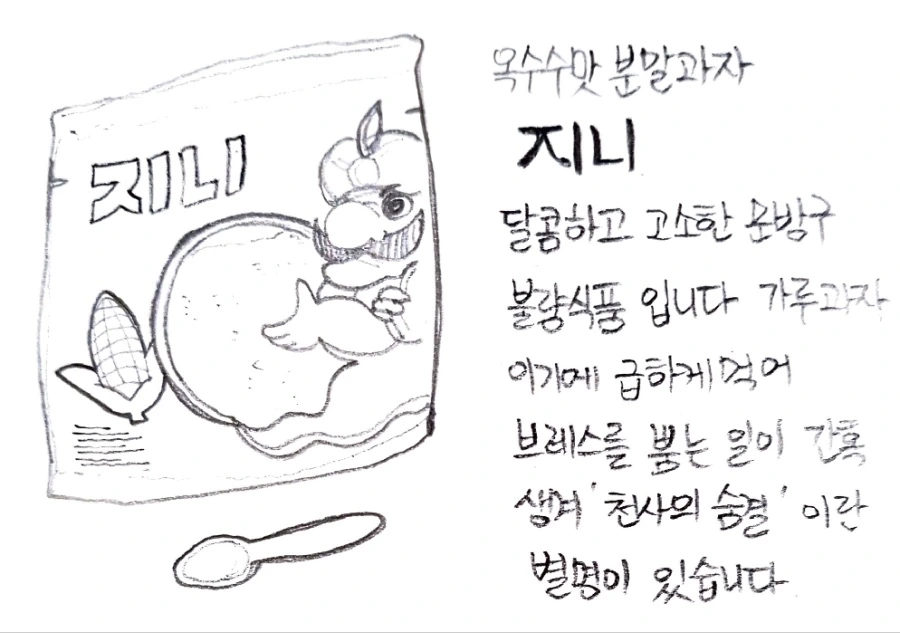 지니
옥수수맛 분말과자
지니
달콤하고 고소한 문방구
불량식품 입니다 가루과자
이기에 급하게 먹어
브레스를 뿜는 일이 간혹
생겨 '천사의 숨결' 이란
별명이 있습니다